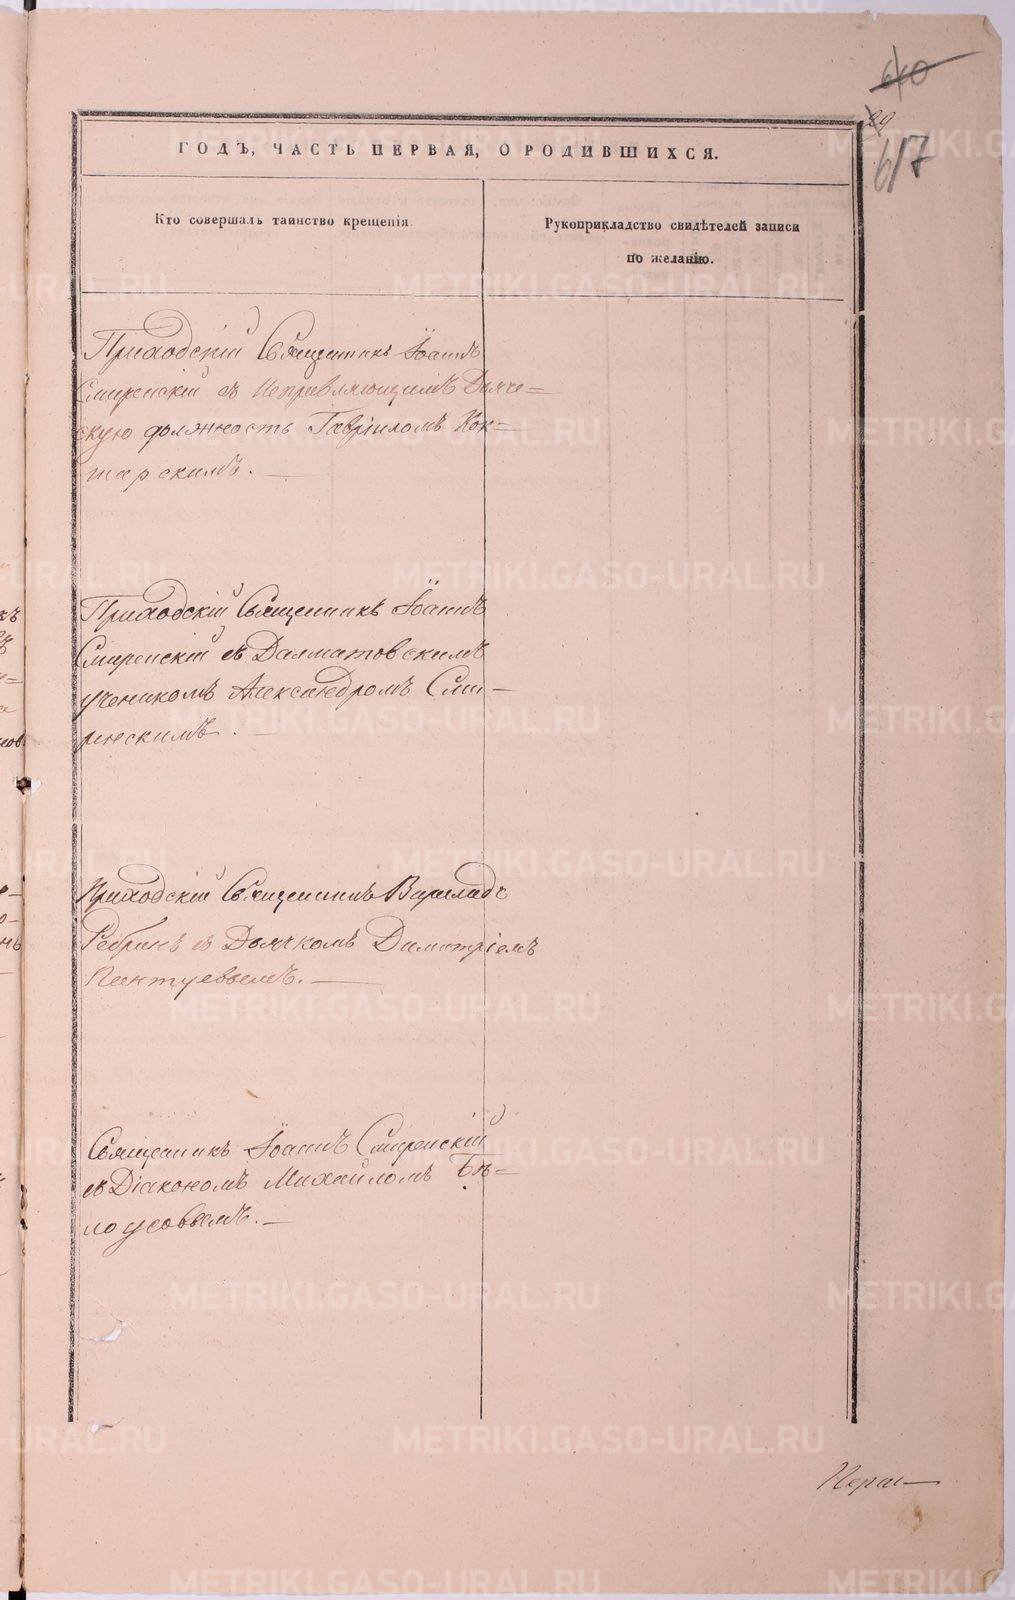 640
89
617
ГОДЪ, ЧАСТЬ ПЕРВАЯ, О РОДИВШИХСЯ.
Кто совершалъ таинство крещенія.
Рукоприкладство свидѣтелей записи
по желанію.
Приходскій Священникъ Іоаннъ
Смиренскій съ Исправляющимъ Дьяче=
скую должность Гавріиломъ Кок=
шарскимъ.
Приходскій Священникъ Іоаннъ
Смиренскій съ Далматовскимъ
ученикомъ Александромъ Сми-
ренскимъ.
Приходскій Священникъ Варлаамъ
Ребринъ съ Дьячкомъ Димитріемъ
Пантуевымъ.
Священникъ Іоаннъ Смиренскій
съ Діакономъ Михаиломъ Бѣ=
лоусовымъ.
METRIKI.GASO-URAL.RU